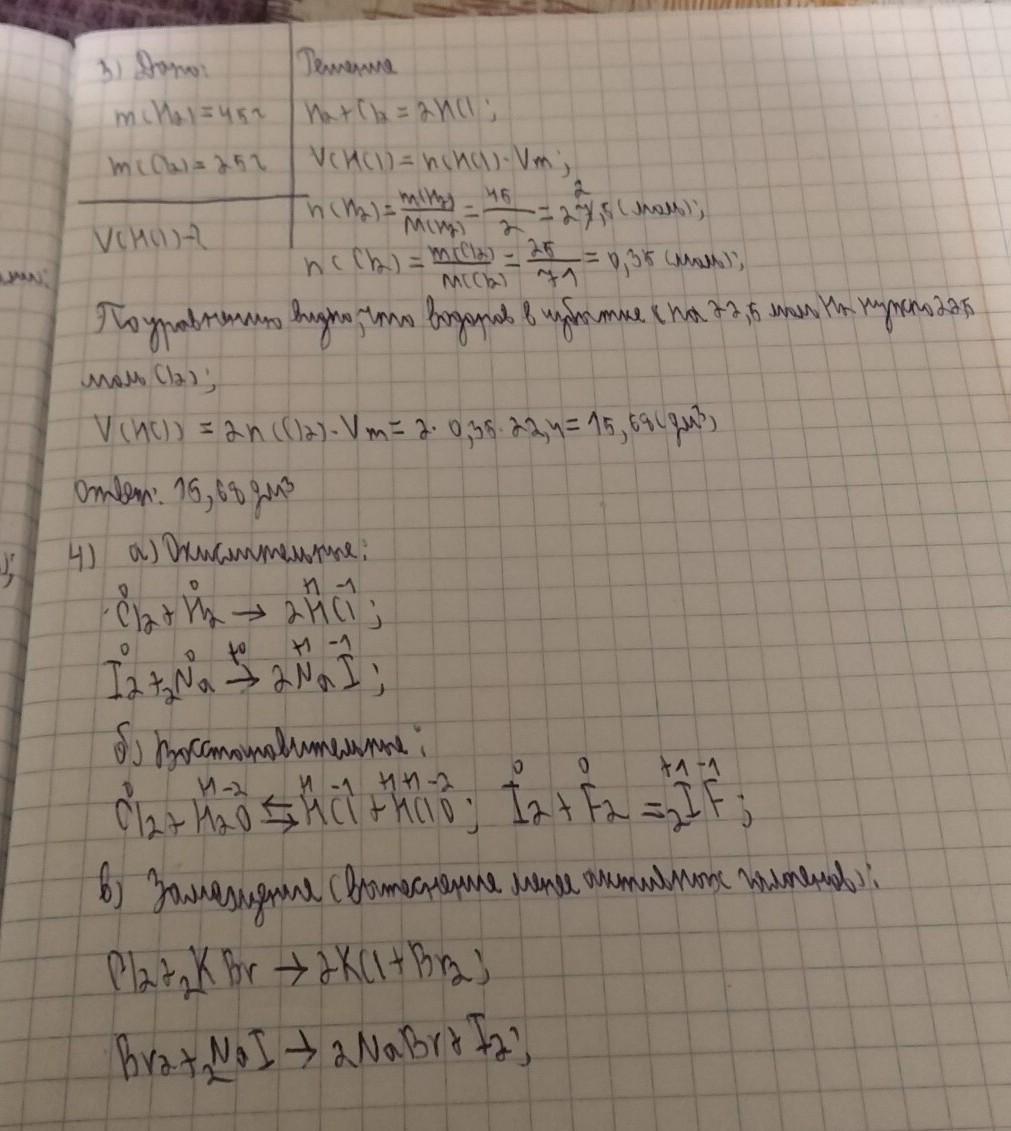 3) Дано:
Решение
m(H2)=45г
H2+Cl2=2HCl;
m(Cl2)=25г
V(HCl)=n(HCl)·Vm;
V(HCl)-?
n(H2)=m(H2)/M(H2)=45/2=22,5(моль);
n(Cl2)=m(Cl2)/M(Cl2)=25/71=0,35(моль);
По уравнению видно, что водород в избытке (на 22,5 моль H2 нужно 22,5
моль Cl2);
V(HCl)=2n(Cl2)·Vm=2·0,35·22,4=15,68(дм³)
Ответ: 15,68дм³
4) а) Окислительные:
0 0 +1 -1
Cl2+H2→2HCl;
0 0 t° +1 -1
I2+2Na→2NaI;
б) Восстановительные:
0 +1 -2 +1 -1 +1 +1 -2 0 0 +1 -1
Cl2+H2O⇆HCl+HClO; I2+F2=2IF;
в) Замещение (вытеснение менее активных галогенов):
Cl2+2KBr→2KCl+Br2;
Br2+2NaI→2NaBr+I2;